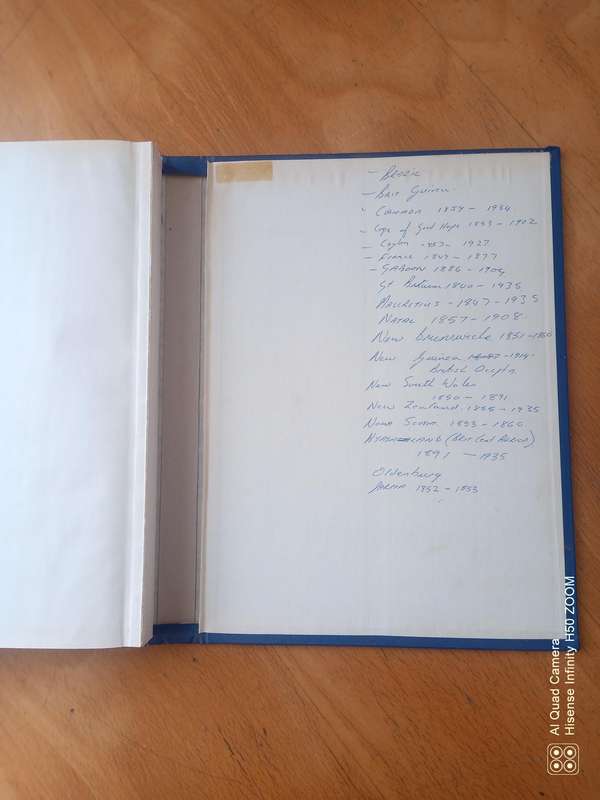 - Brazil
- Brit Guiana
- Cape of Good Hope 1853 - 1902
- Ceylon 1857 - 1927
- France 1849 - 1877
- GABOON 1886 - 1904
Gt Britain 1840 - 1935
MAURITIUS - 1847 - 1935
NATAL 1857 - 1908
New Brunswicke 1851 - 1860
New Guinea - 1914
British Occptn
New South Wales
1850 - 1891
New Zealand 1855 - 1935
Nova Scotia 1853 - 1860
(Brit Cent Africa)
1891 - 1935
Oldenburg
PARMA 1852 - 1853
AI Quad Camera
Hisense Infinity H50 ZOOM